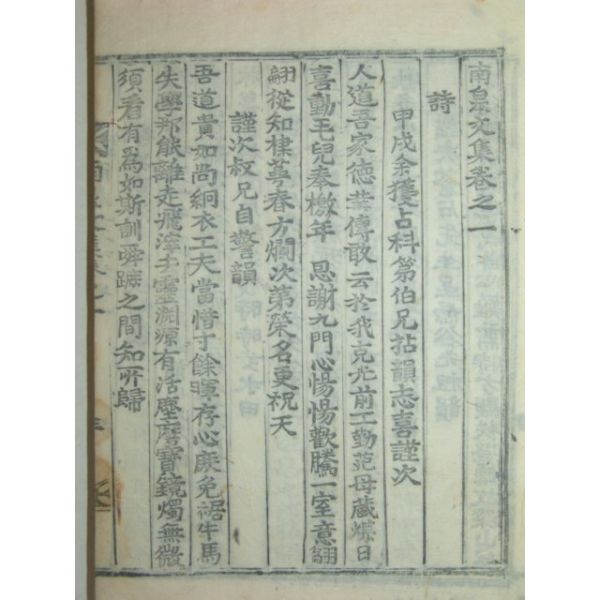 南泉文集卷之一
詩
甲戌余獲占科第伯兄拈韻志喜謹次
人道吾家德業傳敢云於我克光前工勤范母藏螢日
喜動毛兒奉檄年 恩謝九門心惕惕歡騰一室意翩
翩從知棣萼春方爛次第榮名更祝天
謹次叔兄自警韻
吾道貴如尚絅衣工夫當惜寸餘暉存心庶免裾牛馬
失學那能離走飛澤 靈淵源有活塵磨寶鏡燭無微
須看有爲如斯訓舜蹠之間知所歸